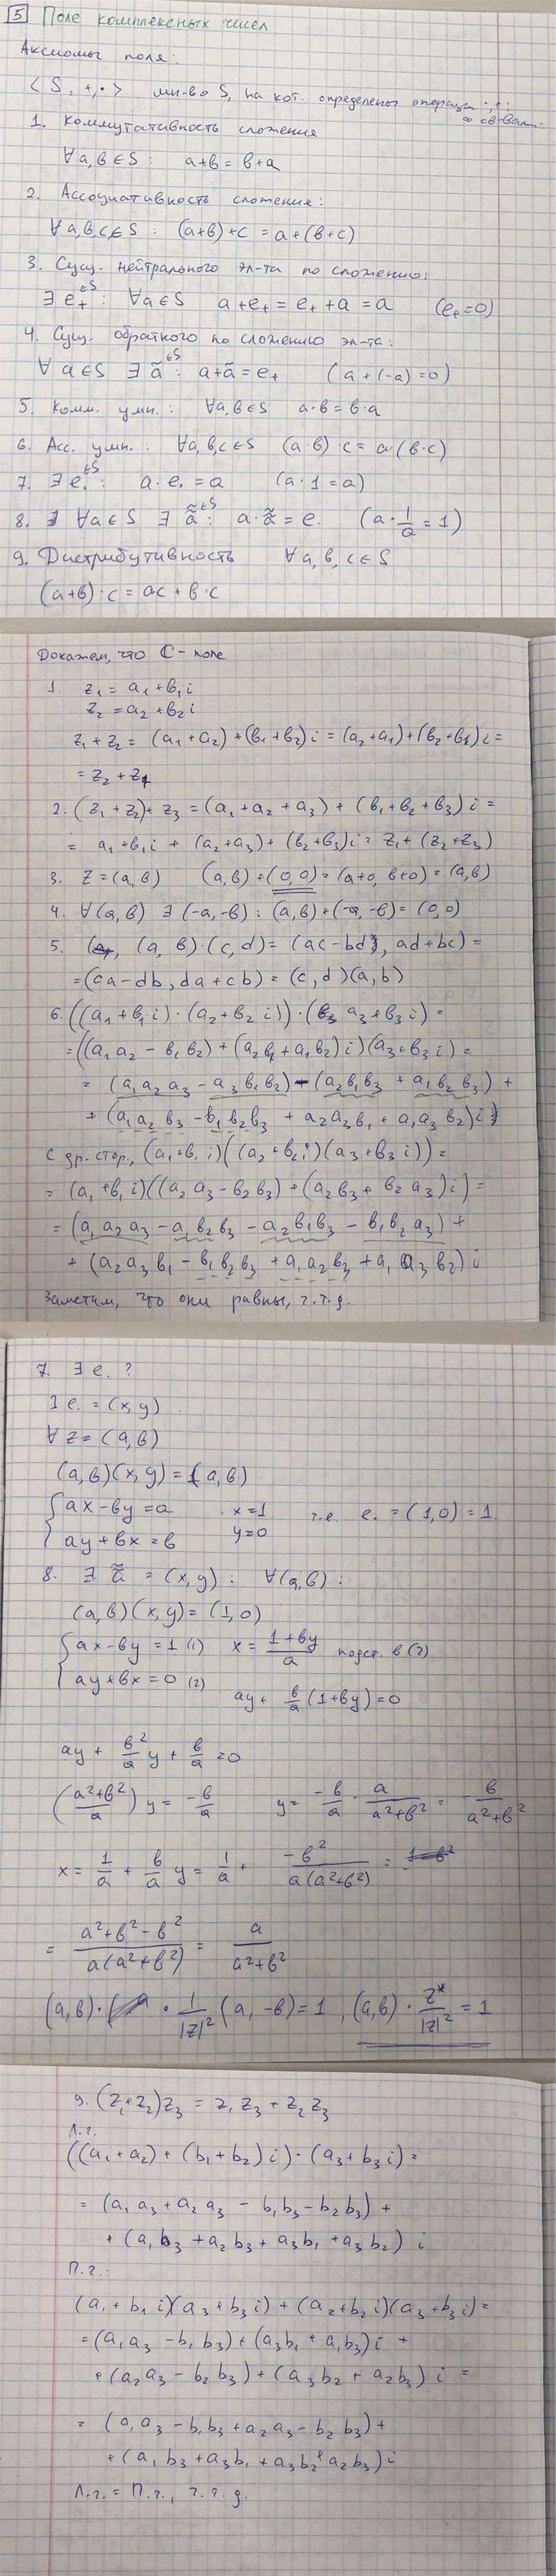 5 Поле комплексных чисел
Аксиомы поля:
< S, +, · > мн-во S, на кот. определены операции ·, + :
со св-вами:
1. Коммутативность сложения
∀a,b∈S : a+b = b+a
2. Ассоциативность сложения:
∀a,b,c∈S : (a+b)+c = a+(b+c)
3. Сущ. нейтрального эл-та по сложению:
∃ e₊∈S : ∀a∈S a+e₊ = e₊+a = a (e₊=0)
4. Сущ. обратного по сложению эл-та:
∀ a∈S ∃ ã∈S : a+ã = e₊ (a+(-a)=0)
5. Комм. умн. : ∀a,b∈S a·b = b·a
6. Асс. умн. : ∀a,b,c∈S (a·b)·c = a·(b·c)
7. ∃ e.∈S : a·e. = a (a·1=a)
8. ∀a∈S ∃ ã̃∈S : a·ã̃ = e. (a·1/a = 1)
9. Дистрибутивность ∀a,b,c∈S
(a+b)·c = ac + b·c
Докажем, что ℂ - поле
1. z₁ = a₁+b₁i
z₂ = a₂+b₂i
z₁+z₂ = (a₁+a₂)+(b₁+b₂)i = (a₂+a₁)+(b₂+b₁)i =
= z₂+z₁
2. (z₁+z₂)+z₃ = (a₁+a₂+a₃) + (b₁+b₂+b₃)i =
= a₁+b₁i + (a₂+a₃)+(b₂+b₃)i = z₁+(z₂+z₃)
3. z=(a,b) (a,b)+(0,0)=(a+0, b+0)=(a,b)
4. ∀(a,b) ∃(-a,-b) : (a,b)+(-a,-b)=(0,0)
5. (a,b)·(c,d)=(ac-bd, ad+bc) =
=(ca-db, da+cb) = (c,d)(a,b)
6. ((a₁+b₁i)·(a₂+b₂i))·(a₃+b₃i) =
=((a₁a₂-b₁b₂)+(a₂b₁+a₁b₂)i)(a₃+b₃i) =
= (a₁a₂a₃-a₃b₁b₂)-(a₂b₁b₃+a₁b₂b₃) +
+(a₁a₂b₃-b₁b₂b₃+a₂a₃b₁+a₁a₃b₂)i
С др. стор., (a₁+b₁i)((a₂+b₂i)(a₃+b₃i)) =
= (a₁+b₁i)((a₂a₃-b₂b₃)+(a₂b₃+b₂a₃)i) =
= (a₁a₂a₃-a₁b₂b₃-a₂b₁b₃-b₁b₂a₃) +
+ (a₂a₃b₁-b₁b₂b₃+a₁a₂b₃+a₁a₃b₂)i
Заметим, что они равны, ч.т.д.
7. ∃ e. ?
∃ e. = (x,y)
∀ z=(a,b)
(a,b)(x,y)=(a,b)
{ax-by=a x=1 т.е. e. = (1,0) = 1.
{ay+bx=b y=0
8. ∃ ã̃ = (x,y) : ∀(a,b) :
(a,b)(x,y)=(1,0)
{ax-by=1 (1) x = (1+by)/a подст. в (2)
{ay+bx=0 (2)
ay + b/a(1+by)=0
ay + b²/a y + b/a = 0
((a²+b²)/a) y = -b/a y = -b/a · a/(a²+b²) = -b/(a²+b²)
x = 1/a + b/a y = 1/a + -b²/(a(a²+b²)) =
= (a²+b²-b²)/(a(a²+b²)) = a/(a²+b²)
(a,b)· 1/|z|² (a,-b)=1, (a,b)· z*/|z|² = 1
9. (z₁+z₂)z₃ = z₁z₃+z₂z₃
Л.ч.
((a₁+a₂)+(b₁+b₂)i)·(a₃+b₃i) =
= (a₁a₃+a₂a₃-b₁b₃-b₂b₃) +
+ (a₁b₃+a₂b₃+a₃b₁+a₃b₂)i
П.ч.:
(a₁+b₁i)(a₃+b₃i)+(a₂+b₂i)(a₃+b₃i) =
=(a₁a₃-b₁b₃)+(a₃b₁+a₁b₃)i +
+(a₂a₃-b₂b₃)+(a₃b₂+a₂b₃)i =
= (a₁a₃-b₁b₃+a₂a₃-b₂b₃)+
+(a₁b₃+a₃b₁+a₃b₂+a₂b₃)i
Л.ч. = П.ч., ч.т.д.